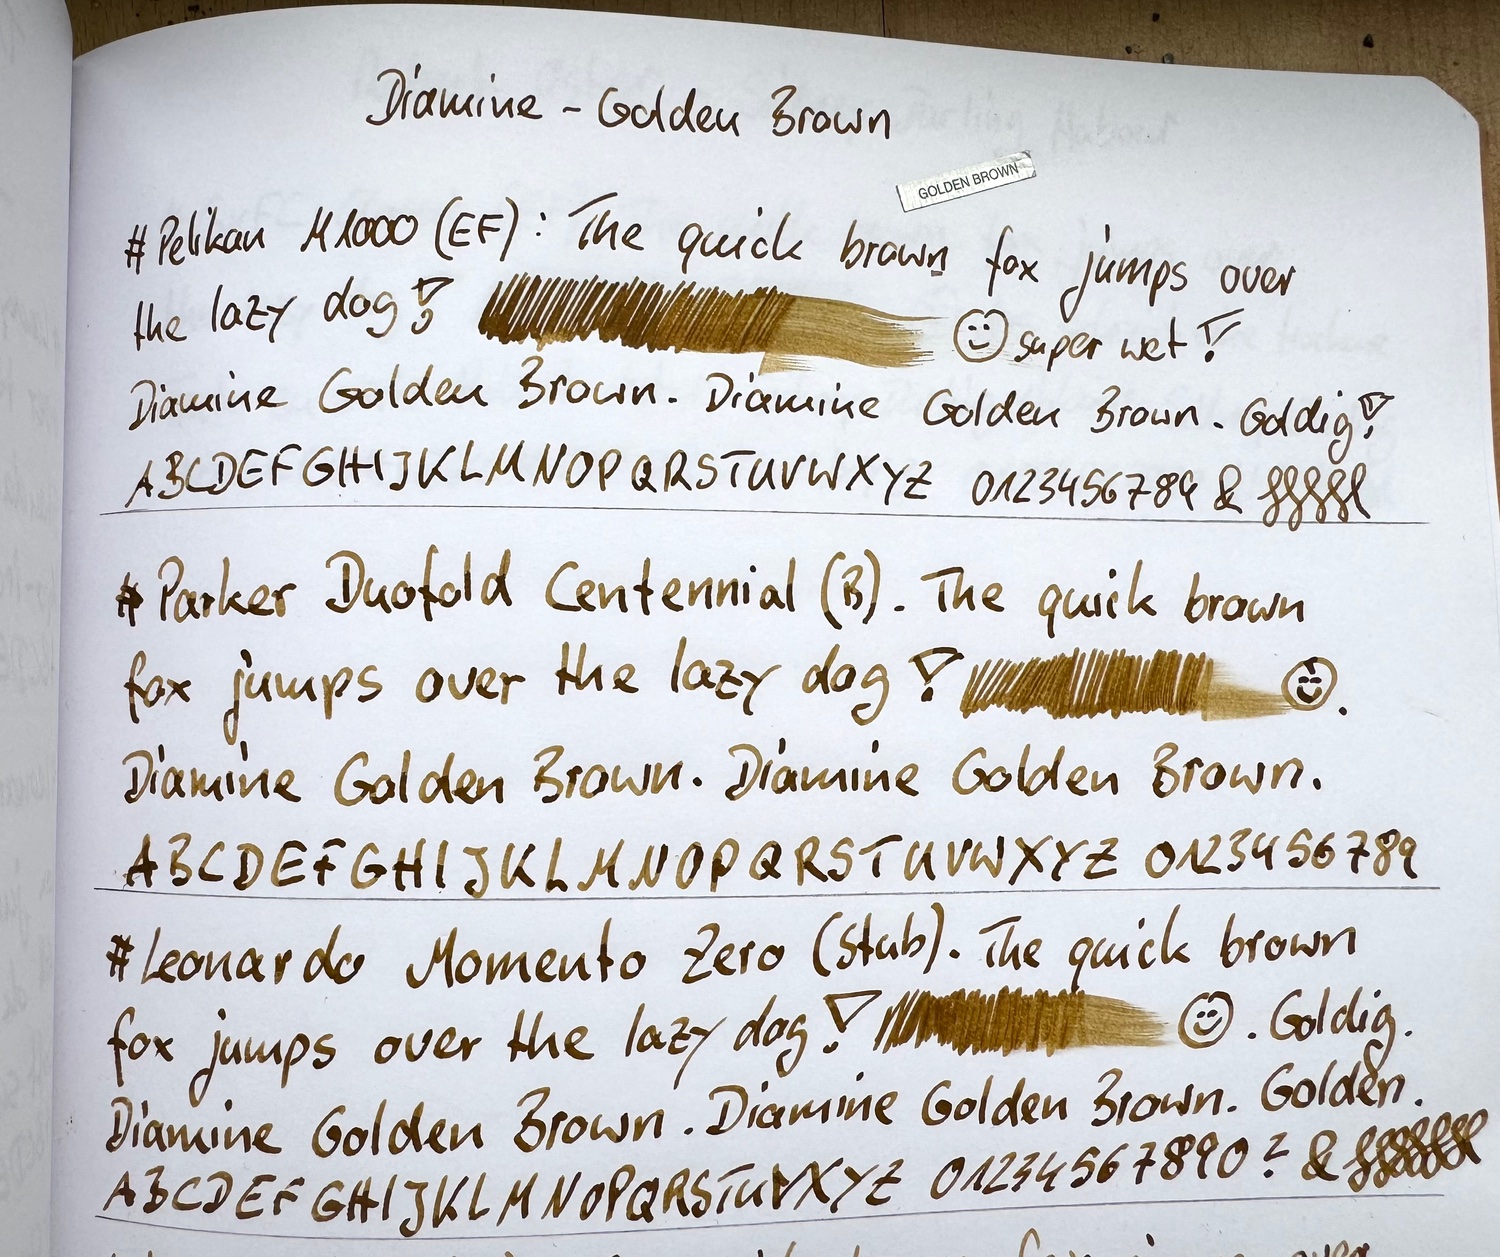 Diamine - Golden Brown
GOLDEN BROWN
# Pelikan M1000 (EF): The quick brown fox jumps over
the lazy dog! super wet!
Diamine Golden Brown. Diamine Golden Brown. Goldig!
ABCDEFGHIJKLMNOPQRSTUVWXYZ 0123456789 &
# Parker Duofold Centennial (B). The quick brown
fox jumps over the lazy dog!
Diamine Golden Brown. Diamine Golden Brown.
ABCDEFGHIJKLMNOPQRSTUVWXYZ 0123456789
# Leonardo Momento Zero (Stub). The quick brown
fox jumps over the lazy dog! . Goldig.
Diamine Golden Brown. Diamine Golden Brown. Golden.
ABCDEFGHIJKLMNOPQRSTUVXYZ 01234567890? &